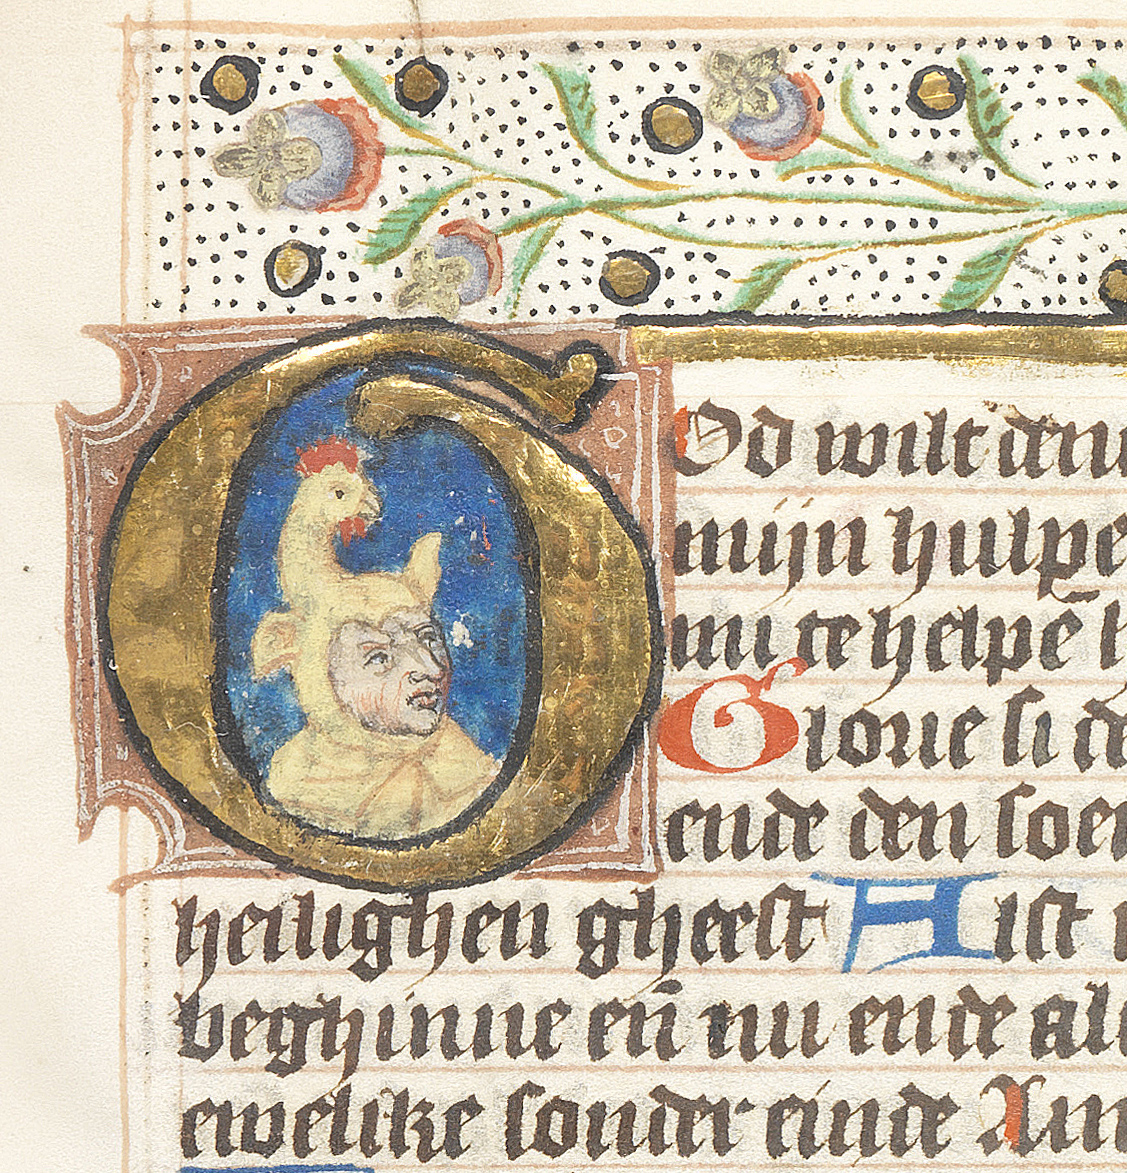 God wilt den
mijn hulpe
mi te helpē h
Glorie si de
ende den soen
heilighen gheest Alst
beghinne eñ nu ende al
ewelike sonder einde Am